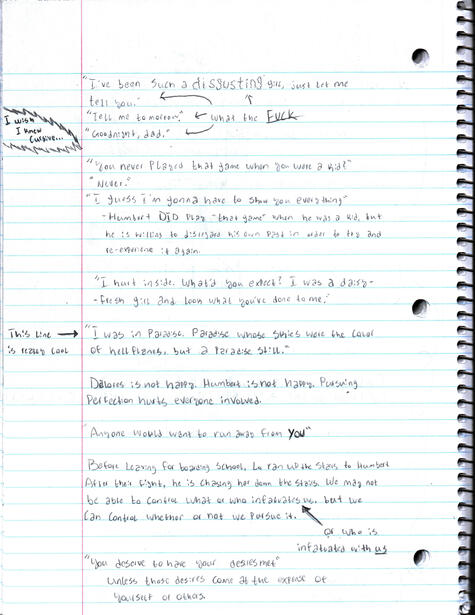 "I've been such a disgusting girl, just let me
tell you."
"Tell me tomorrow." what the FUCK
"Goodnight, dad."
I wish
I knew
cursive...
"You never played that game when you were a kid?"
"Never."
"I guess I'm gonna have to show you everything"
-Humbert DID play "that game" when he was a kid, but
he is willing to disregard his own past in order to try and
re-experience it again.
"I hurt inside. What'd you expect? I was a daisy-
-fresh girl and look what you've done to me."
This line
is really cool
"I was in Paradise. Paradise whose skies were the color
of hellflames, but a Paradise still."
Dolores is not happy. Humbert is not happy. Pursuing
Perfection hurts everyone involved.
"Anyone would want to run away from you"
Before leaving for boarding school, Lo ran up the stairs to Humbert
After their fight, he is chasing her down the stairs. We may not
be able to control what or who infatuates us, but we
can control whether or not we pursue it.
or who is
infatuated with us
"You deserve to have your desires met"
unless those desires come at the expense of
yourself or others.